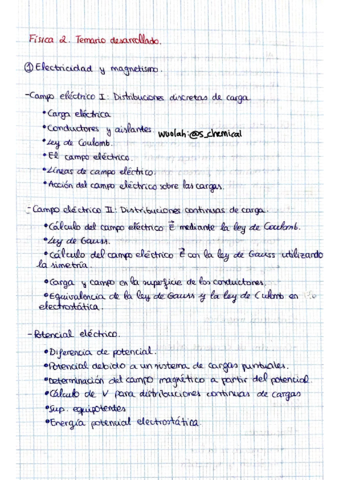 Física 2. Temario desarrollado.
① Electricidad y magnetismo.
-Campo eléctrico I: Distribuciones discretas de carga.
• Carga eléctrica
• Conductores y aislantes. wuolah:@s_chemical
• Ley de Coulomb.
• El campo eléctrico.
• Líneas de campo eléctrico.
• Acción del campo eléctrico sobre las cargas.
- Campo eléctrico II: Distribuciones continuas de carga.
• Cálculo del campo eléctrico E⃗ mediante la ley de Coulomb.
• Ley de Gauss.
• Cálculo del campo eléctrico E⃗ con la ley de Gauss utilizando
la simetría.
• Carga y campo en la superficie de los conductores.
• Equivalencia de la ley de Gauss y la ley de Culomb en
electrostática.
- Potencial eléctrico.
• Diferencia de potencial.
• Potencial debido a un sistema de cargas puntuales.
• Determinación del campo magnético a partir del potencial.
• Cálculo de V para distribuciones continuas de cargas
• Sup. equipotentes
• Energía potencial electrostática.